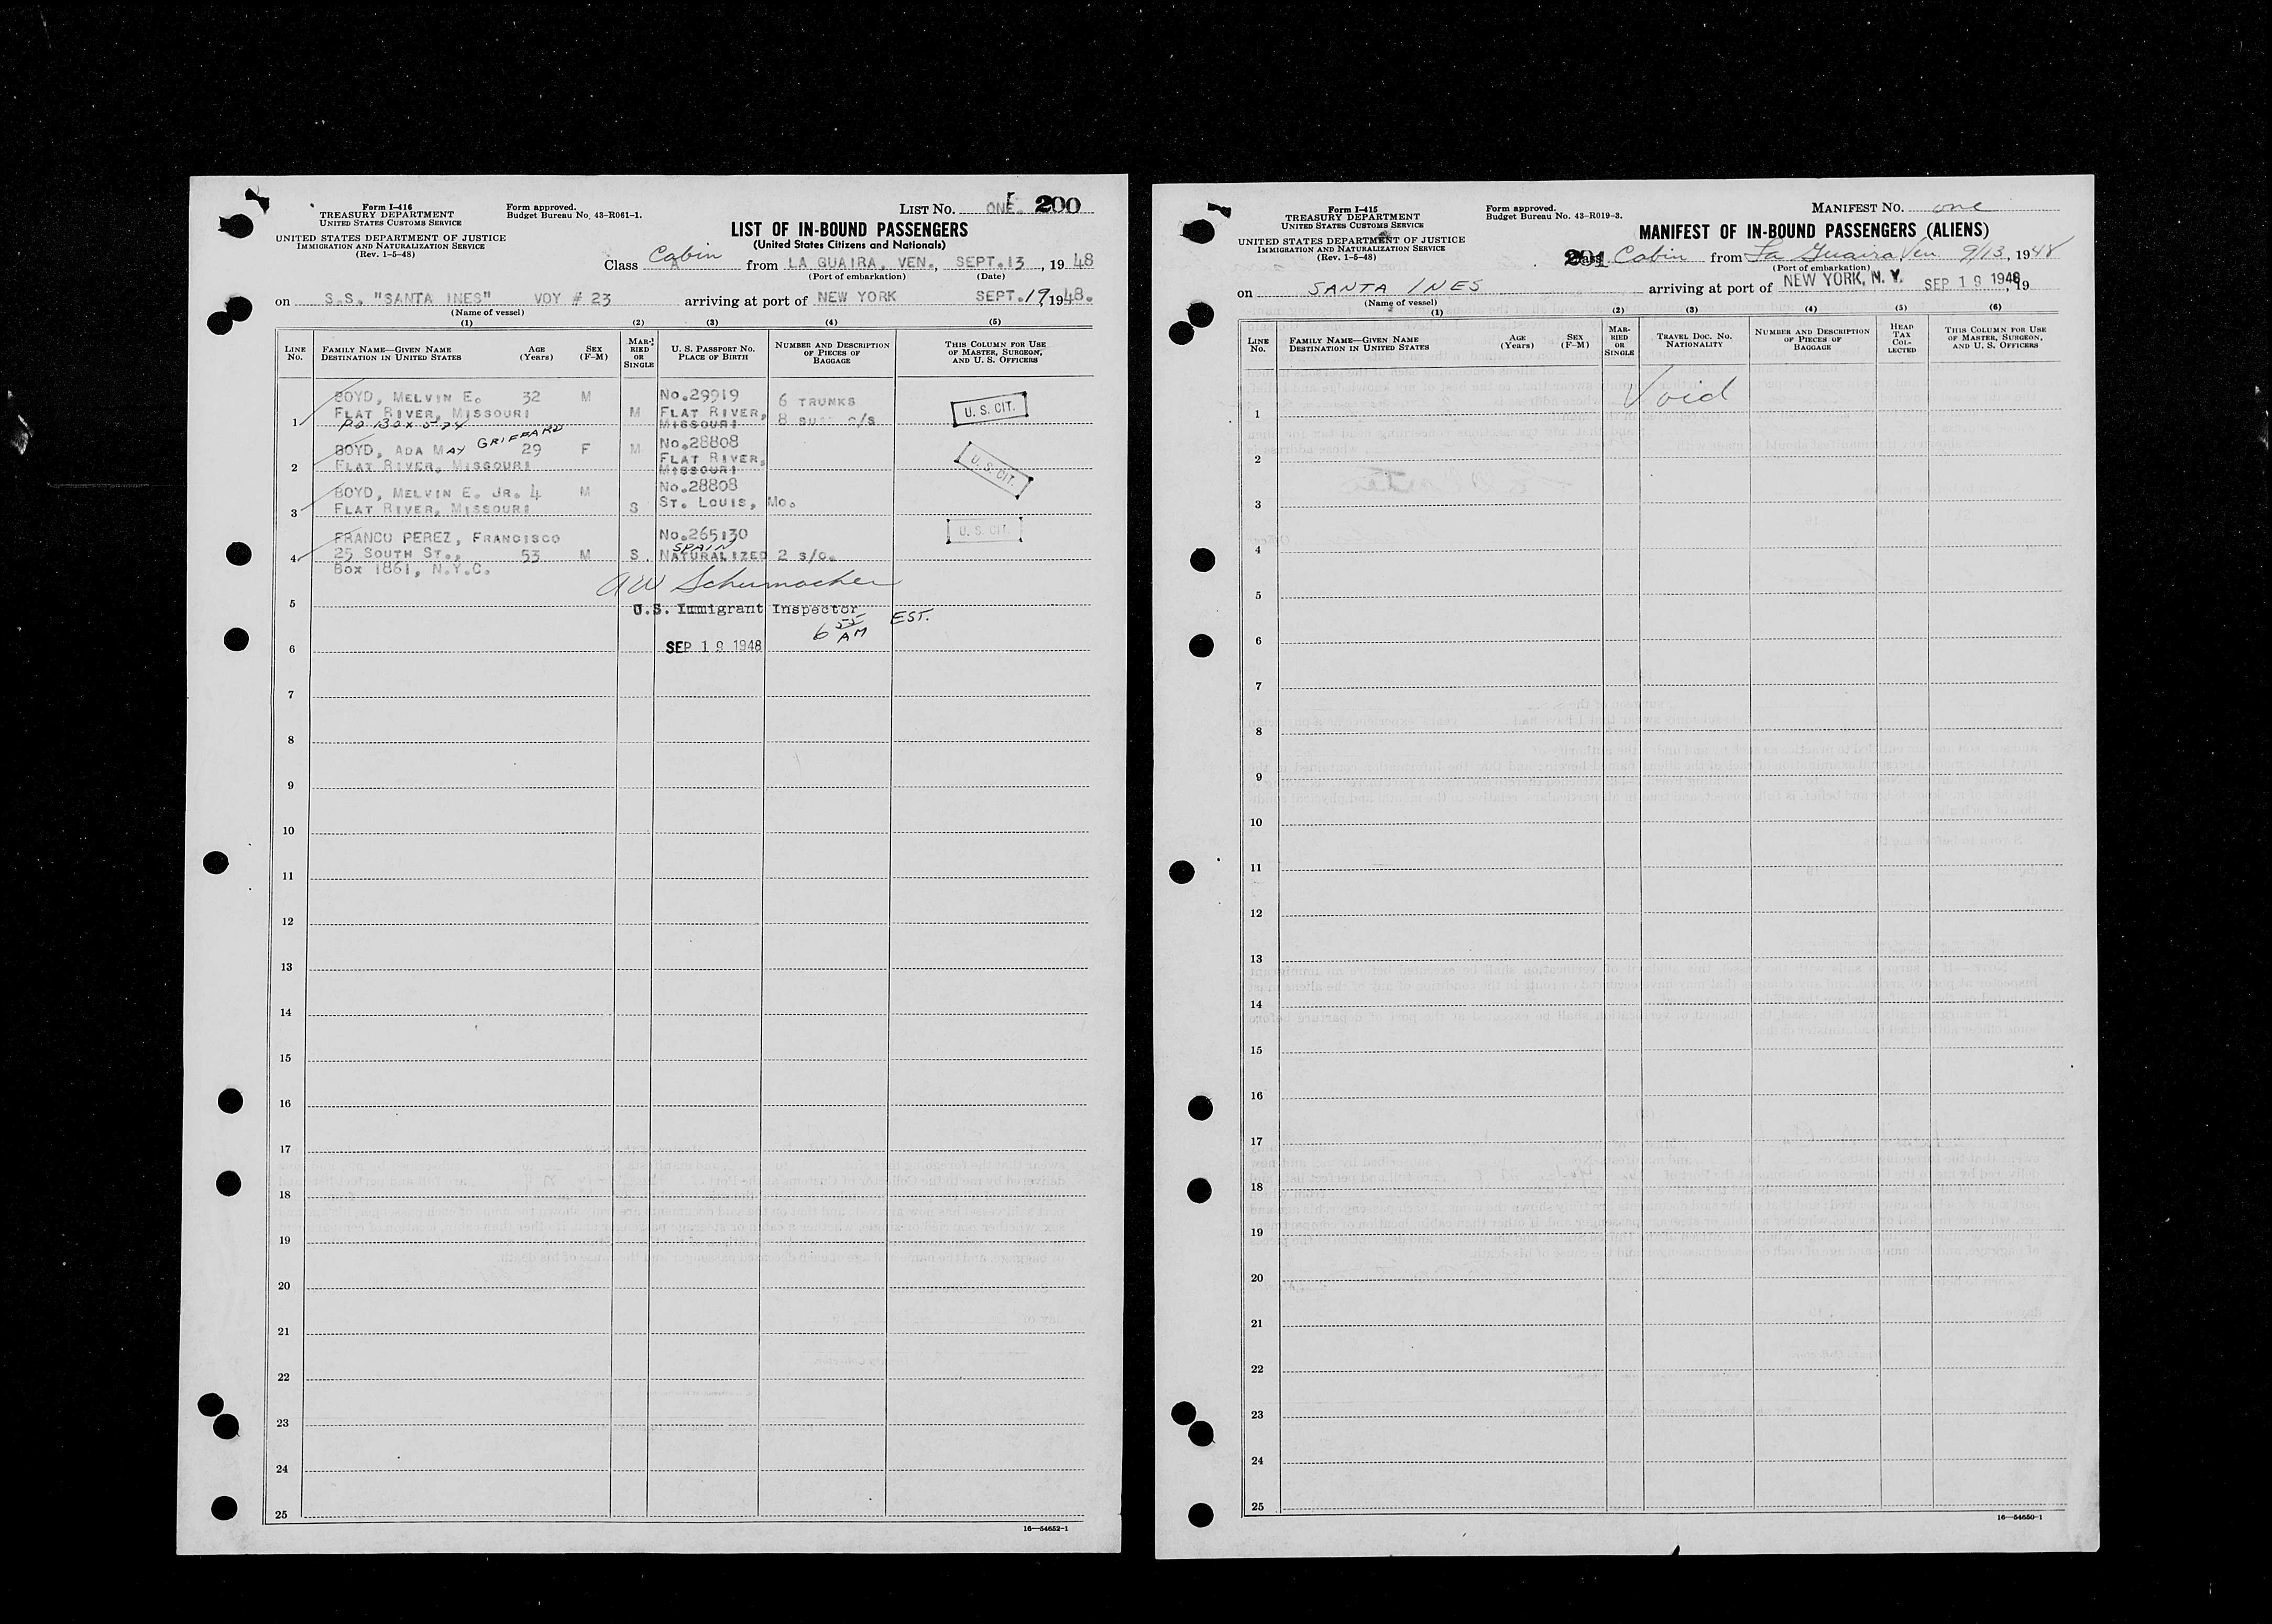 Form I-416
TREASURY DEPARTMENT
UNITED STATES CUSTOMS SERVICE
UNITED STATES DEPARTMENT OF JUSTICE
IMMIGRATION AND NATURALIZATION SERVICE
(Rev. 1-5-48)
Form approved.
Budget Bureau No. 43-R061-1.
LIST NO. ONE. 200
LIST OF IN-BOUND PASSENGERS
(United States Citizens and Nationals)
Class Cabin from LA GUAIRA, VEN., SEPT.13, 1948
(Port of embarkation) (Date)
on S.S. "SANTA INES" VOY # 23 arriving at port of NEW YORK SEPT.19, 1948.
(Name of vessel)
(1) (2) (3) (4) (5)
LINE NO.
FAMILY NAME—GIVEN NAME
DESTINATION IN UNITED STATES
AGE (Years)
SEX (F-M)
MARRIED OR SINGLE
U. S. PASSPORT NO.
PLACE OF BIRTH
NUMBER AND DESCRIPTION OF PIECES OF BAGGAGE
THIS COLUMN FOR USE OF MASTER, SURGEON, AND U. S. OFFICERS
BOYD, MELVIN E. 32 M No.29919 6 TRUNKS
1 FLAT RIVER, MISSOURI M FLAT RIVER, MISSOURI 8 c/s U. S. CIT.
PO BOX 574
BOYD, ADA MAY GRIFFARD 29 F M No.28808
2 FLAT RIVER, MISSOURI FLAT RIVER, MISSOURI U. S. CIT.
BOYD, MELVIN E. JR. 4 M No.28808
3 FLAT RIVER, MISSOURI S ST. LOUIS, MO.
FRANCO PEREZ, FRANCISCO No.265130 U. S. CIT.
SPAIN
4 25 SOUTH ST., 53 M S. NATURALIZED 2 s/c.
BOX 1861, N.Y.C.
A W Schumacher
5 U.S. Immigrant Inspector
6 55 AM EST.
6 SEP 19 1948
7
8
9
10
11
12
13
14
15
16
17
18
19
20
21
22
23
24
25
16—54652-1
Form I-415
TREASURY DEPARTMENT
UNITED STATES CUSTOMS SERVICE
UNITED STATES DEPARTMENT OF JUSTICE
IMMIGRATION AND NATURALIZATION SERVICE
(Rev. 1-5-48)
Form approved.
Budget Bureau No. 43-R019-3.
MANIFEST NO. one
MANIFEST OF IN-BOUND PASSENGERS (ALIENS)
201 Cabin from La Guaira Ven. 9/13, 1948
(Port of embarkation)
on SANTA INES arriving at port of NEW YORK, N. Y. SEP 19 1948, 19
(Name of vessel)
(1) (2) (3) (4) (5) (6)
LINE NO.
FAMILY NAME—GIVEN NAME
DESTINATION IN UNITED STATES
AGE (Years)
SEX (F-M)
MARRIED OR SINGLE
TRAVEL DOC. NO.
NATIONALITY
NUMBER AND DESCRIPTION OF PIECES OF BAGGAGE
HEAD TAX COLLECTED
THIS COLUMN FOR USE OF MASTER, SURGEON, AND U. S. OFFICERS
1 Void
2
3
4
5
6
7
8
9
10
11
12
13
14
15
16
17
18
19
20
21
22
23
24
25
16—54650-1